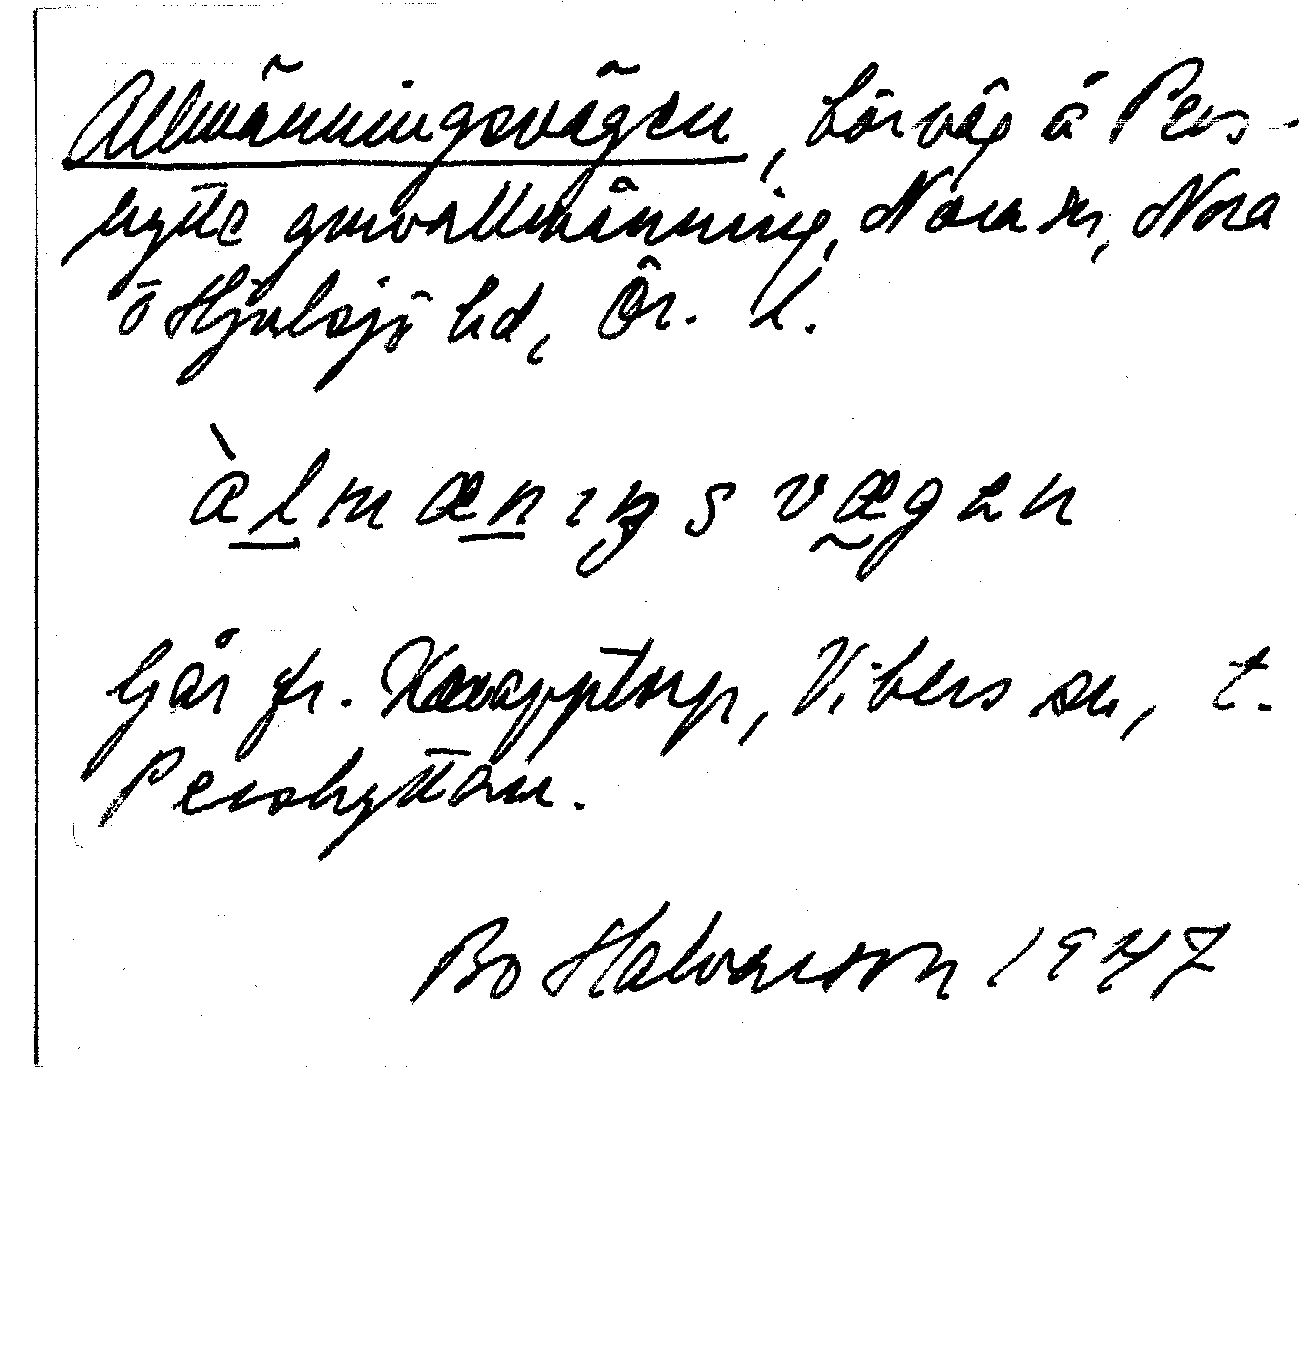 Allmänningsvägen, körväg å Pers-
hytte gruvallmänning, Nora sn, Nora
o Hjulsjö hd, Ör. l.
àlmænıŋsvægen
Går fr. Knapptorp, Vikers sn, t.
Pershyttan.
Bo Halvarsson 1947